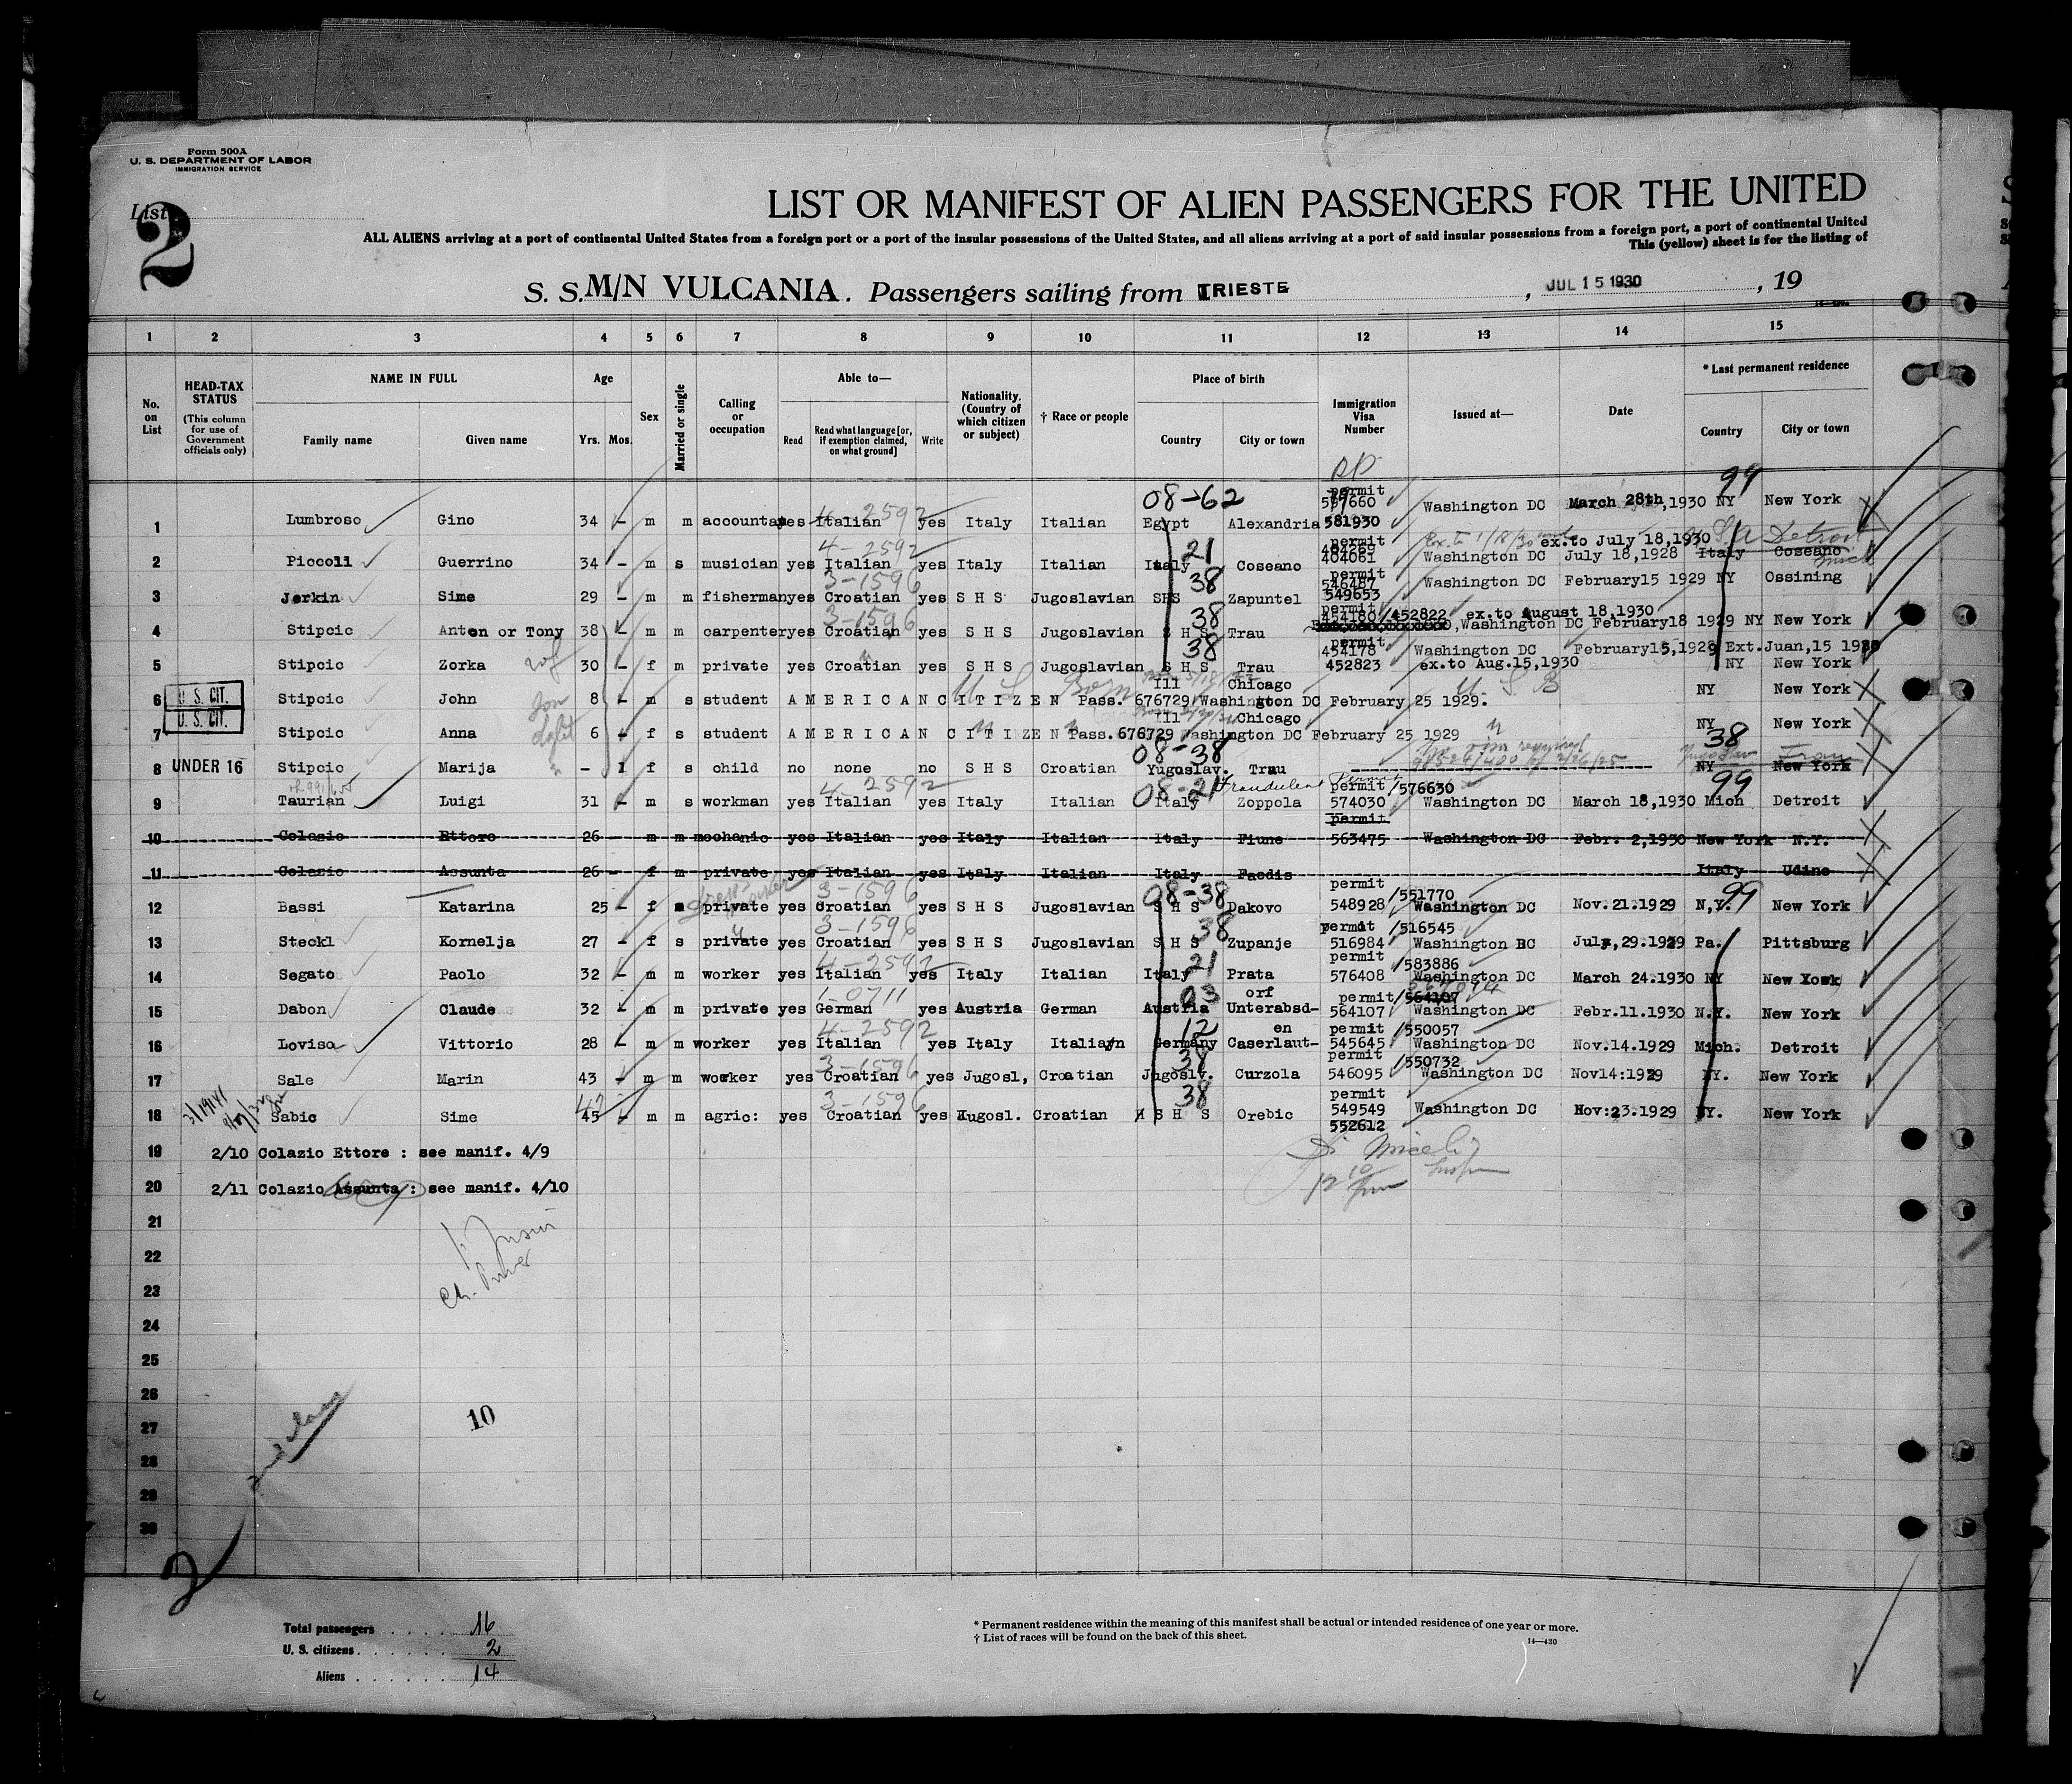 Form 500A
U. S. DEPARTMENT OF LABOR
IMMIGRATION SERVICE
List
2
LIST OR MANIFEST OF ALIEN PASSENGERS FOR THE UNITED
ALL ALIENS arriving at a port of continental United States from a foreign port or a port of the insular possessions of the United States, and all aliens arriving at a port of said insular possessions from a foreign port, a port of continental United
This (yellow) sheet is for the listing of
S. S. M/N VULCANIA. Passengers sailing from TRIESTE, JUL 15 1930, 19
1 2 3 4 5 6 7 8 9 10 11 12 13 14 15
No. on List
HEAD-TAX STATUS
(This column for use of Government officials only)
NAME IN FULL
Family name Given name
Age
Yrs. Mos.
Sex
Married or single
Calling or occupation
Able to—
Read Read what language [or, if exemption claimed, on what ground] Write
Nationality. (Country of which citizen or subject)
† Race or people
Place of birth
Country City or town
Immigration Visa Number
Issued at—
Date
* Last permanent residence
Country City or town
08-62 permit 99
1 Lumbroso Gino 34 - m m accounta yes Italian yes Italy Italian Egypt Alexandria 581930 Washington DC March 28th,1930 NY New York
4-2592 21 permit ex.to July 18,1930 Detroit
2 Piccoli Guerrino 34 - m s musician yes Italian yes Italy Italian Italy Coseano 404061 Washington DC July 18,1928 Italy Coseano
3-1596 38 permit 546487
3 Jerkin Sime 29 - m m fisherman yes Croatian yes S H S Jugoslavian SHS Zapuntel 549653 Washington DC February15 1929 NY Ossining
3-1596 38 permit 454180/452822 ex.to August 18,1930
4 Stipcic Anton or Tony 38 - m m carpenter yes Croatian yes S H S Jugoslavian S H S Trau Washington DC February18 1929 NY New York
38 permit 454178 Washington DC February15,1929 Ext.Juan,15 1930
5 Stipcic Zorka 30 - f m private yes Croatian yes S H S Jugoslavian S H S Trau 452823 ex.to Aug.15,1930 NY New York
U. S. CIT. Ill Chicago
6 Stipcic John 8 - m s student AMERICAN CITIZEN Pass. 676729/Washington DC February 25 1929. NY New York
U. S. CIT. Ill Chicago
7 Stipcic Anna 6 - f s student AMERICAN CITIZEN Pass.676729 Washington DC February 25 1929 NY New York
08-38 38
8 UNDER 16 Stipcic Marija - 1 f s child no none no S H S Croatian Yugoslav. Trau NY New York
4-2592 08-21 fraudulent permit/576630 99
9 Taurian Luigi 31 - m s workman yes Italian yes Italy Italian Italy Zoppola 574030 Washington DC March 18,1930 Mich Detroit
permit
10 Colazio Ettore 26 m m mechanic yes Italian yes Italy Italian Italy Fiume 563475 Washington DC Febr. 2,1930 New York N.Y.
11 Colazio Assunta 26 f m private yes Italian yes Italy Italian Italy Faedis Italy Udine
3-1596 08-38 permit /551770 99
12 Bassi Katarina 25 - f private yes Croatian yes S H S Jugoslavian S H S Dakovo 548928 Washington DC Nov.21.1929 N,Y. New York
3-1596 38 permit /516545
13 Steckl Kornelja 27 - f s private yes Croatian yes S H S Jugoslavian S H S Zupanje 516984 Washington DC July,29.1929 Pa. Pittsburg
4-2592 21 permit /583886
14 Segato Paolo 32 - m m worker yes Italian yes Italy Italian Italy Prata 576408 Washington DC March 24.1930 NY New York
1-0711 03 orf permit/564107
15 Dabon Claude 32 - m m private yes German yes Austria German Austria Unterabsd- 564107 Washington DC Febr.11.1930 N.Y. New York
4-2592 12 en permit /550057
16 Lovisa Vittorio 28 - m m worker yes Italian yes Italy Italian Germany Caserlaut- 545645 Washington DC Nov.14.1929 Mich. Detroit
3-1596 38 permit /550732
17 Sale Marin 43 - m m worker yes Croatian yes Jugosl, Croatian Jugoslv. Curzola 546095 Washington DC Nov14:1929 NY. New York
3-1596 38 permit
18 Sabic Sime 45 - m m agric: yes Croatian yes Yugosl. Croatian S H S Orebic 549549 Washington DC Nov:23.1929 NY. New York
552612
19 2/10 Colazio Ettore : see manif. 4/9
20 2/11 Colazio Assunta : see manif. 4/10
21
22
23
24
25
26
27
28
29
30
10
2
Total passengers 16
U. S. citizens 2
Aliens 14
* Permanent residence within the meaning of this manifest shall be actual or intended residence of one year or more.
† List of races will be found on the back of this sheet.
14—430